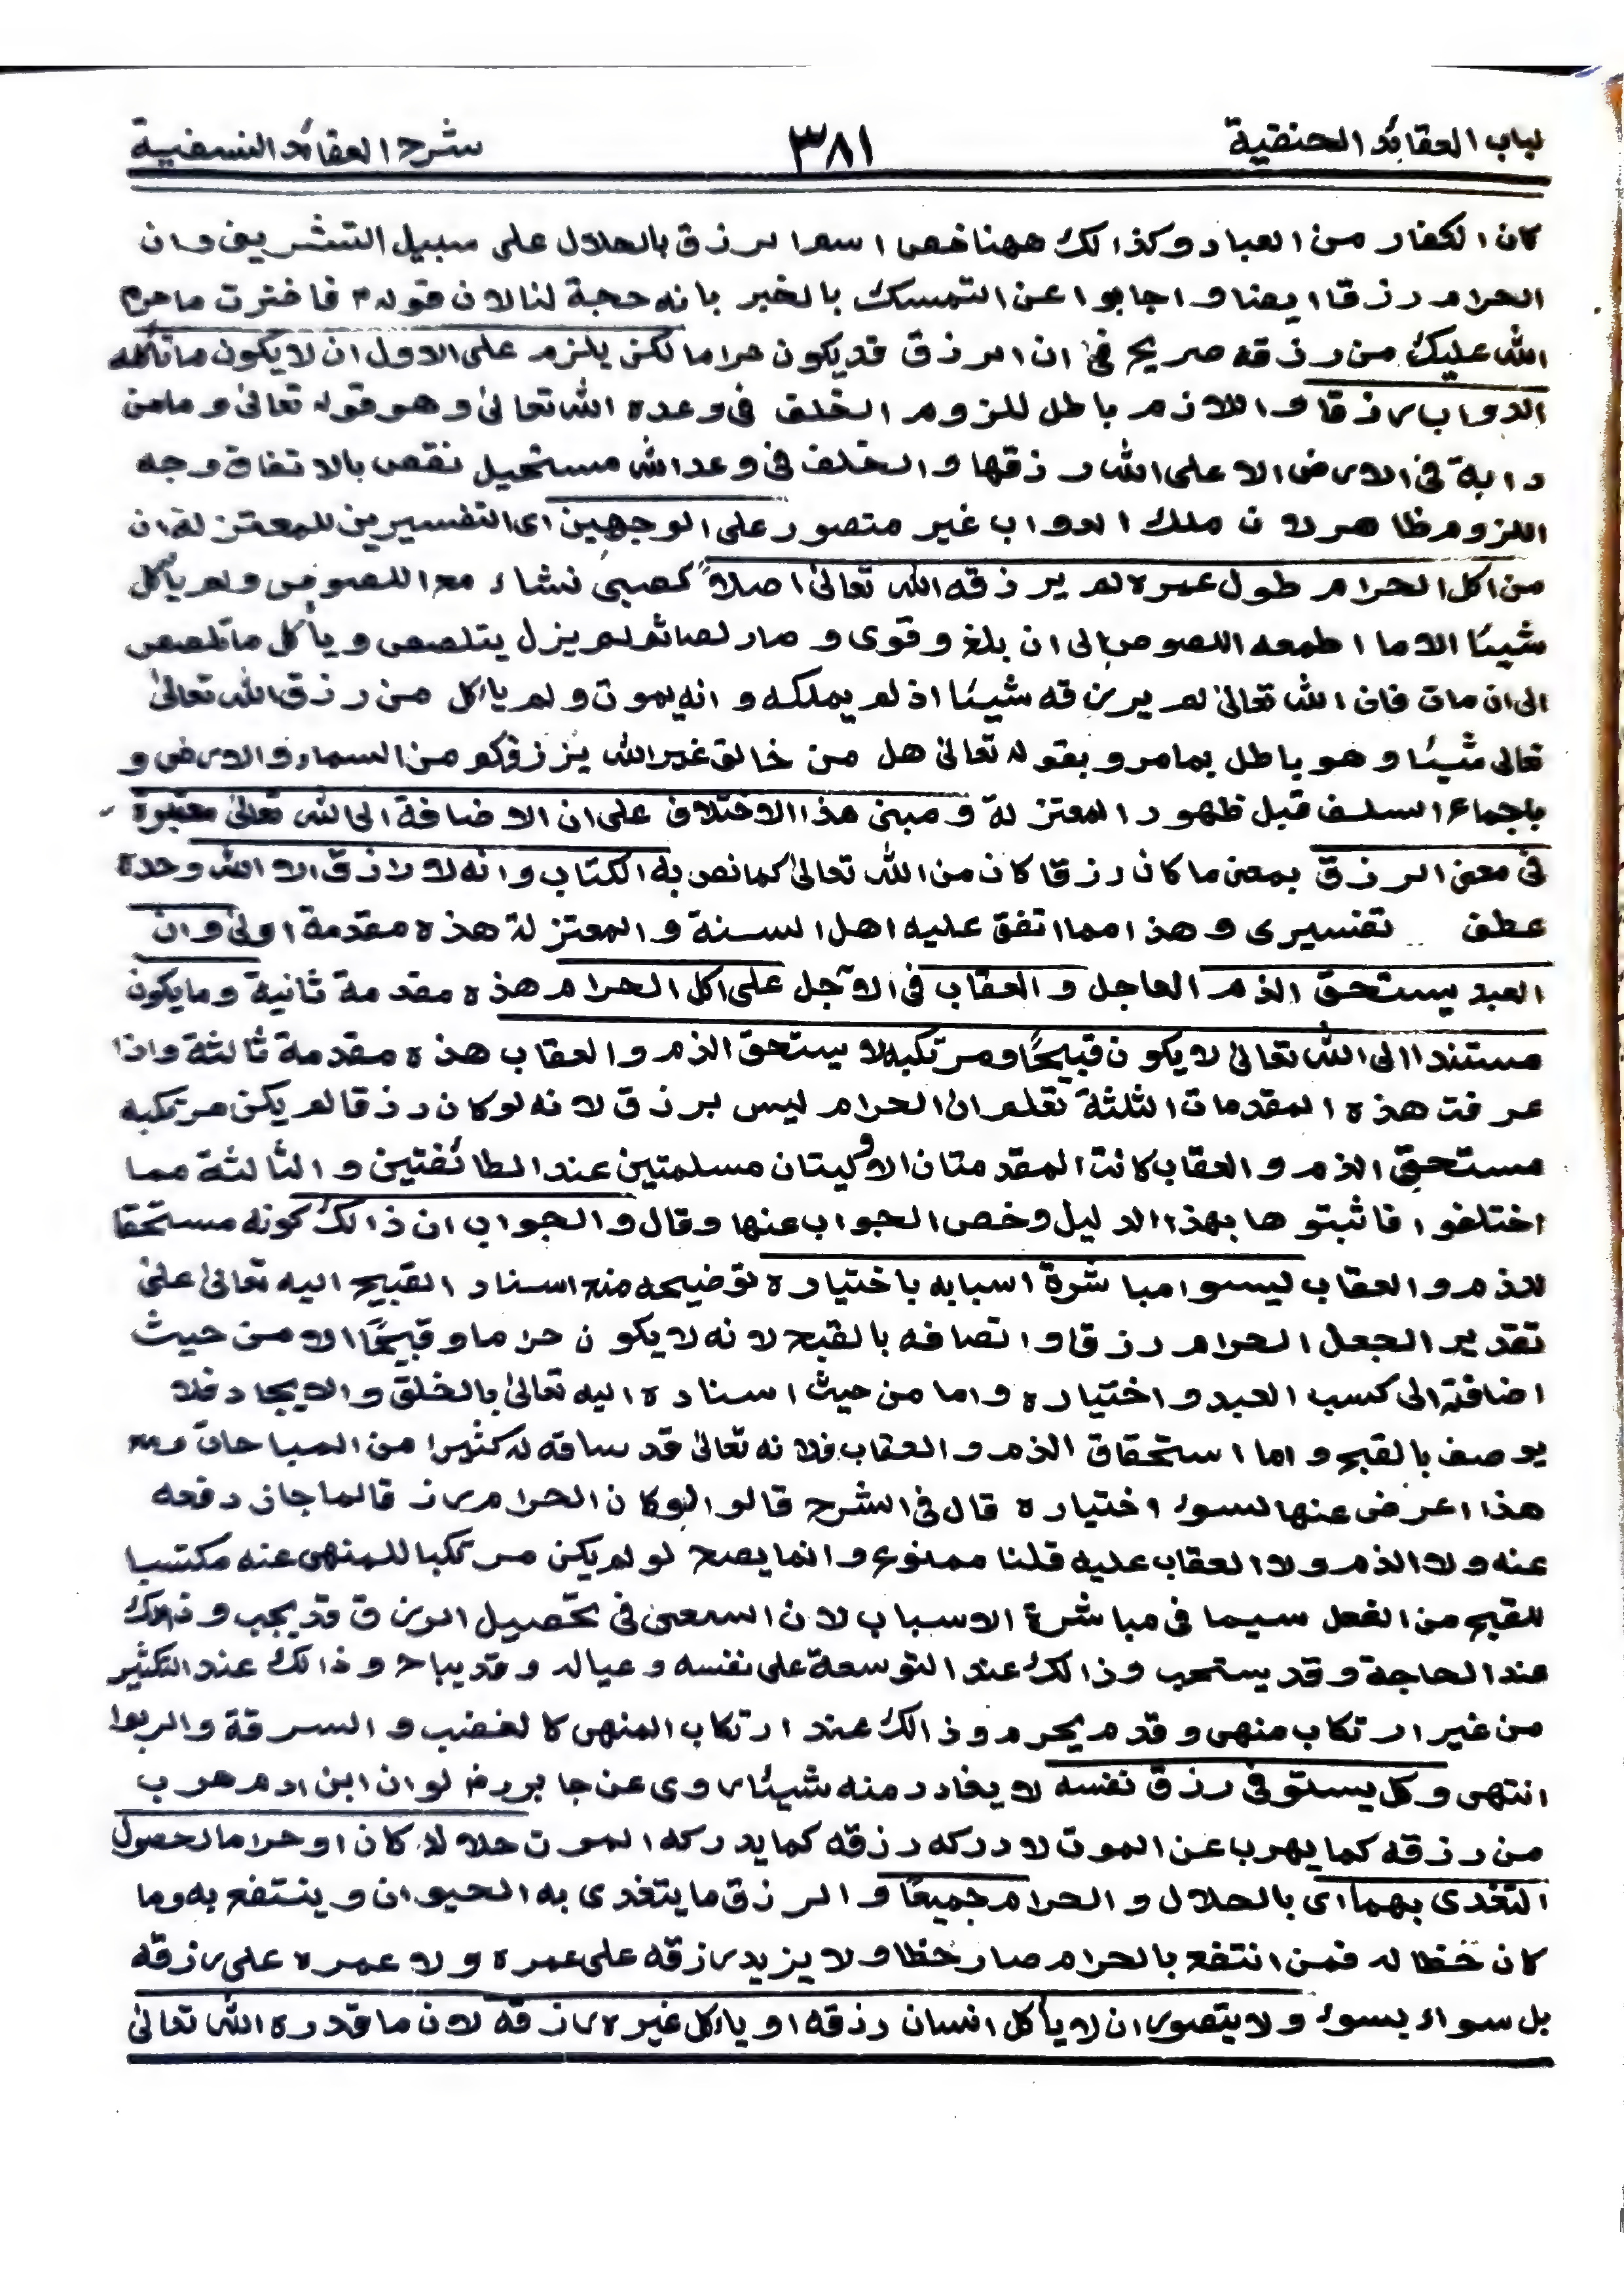 لباب العقائد الحنفية ٣٨١ شرح العقائد النسفية
كان الكفار من العباد وكذالك ههنا خص اسم الرزق بالحلال على سبيل التشريف وان
الحرام رزقا ايضا و اجابوا عن التمسك بالخبر بانه حجة لنا لان قوله فاخترت ما حرم
الله عليك من رزقه صريح فى ان الرزق قد يكون حراما لكن يلزم على الاول ان لا يكون ما تأكله
الدواب رزقا و اللازم باطل للزوم الخلف فى وعده الله تعالى و هو قوله تعالى و ما من
دابة فى الارض الا على الله رزقها و الخلف فى وعد الله مستحيل نقص بالاتفاق وجه
اللزوم ظاهر لان ملك الدواب غير متصور على الوجهين اى التفسيرين للمعتزلة ان
من اكل الحرام طول عمره لم يرزقه الله تعالى اصلاً كصبى نشاء مع اللصوص ولم يأكل
شيئا الا ما اطعمه اللصوص الى ان بلغ وقوى و صار لصا ثم لم يزل يتلصص و يأكل ما تلصص
الى ان مات فان الله تعالى لم يرزقه شيئا اذ لم يملكه و انه يموت و لم ياكل من رزق الله تعالى
تعالى شيئا و هو باطل بما مر و بقوله تعالى هل من خالق غير الله يرزقكم من السماء و الارض و
باجماع السلف قبل ظهور المعتزلة و مبنى هذا الاختلاف على ان الاضافة الى الله تعالى معتبرة
فى معنى الرزق بمعنى ما كان رزقا كان من الله تعالى كما نص به الكتاب و انه لا رازق الا الله وحده
عطف تفسيرى و هذا مما اتفق عليه اهل السنة و المعتزلة هذه مقدمة اولى و ان
العبد يستحق الذم العاجل و العقاب فى الآجل على اكل الحرام هذه مقدمة ثانية و ما يكون
مستندا الى الله تعالى لا يكون قبيحًا و مرتكبه لا يستحق الذم و العقاب هذه مقدمة ثالثة و اذا
عرفت هذه المقدمات الثلثة تعلم ان الحرام ليس برزق لانه لو كان رزقا لم يكن مرتكبه
مستحق الذم و العقاب كانت المقدمتان الاوليتان مسلمتين عند الطائفتين و الثالثة مما
اختلفوا فاثبتوها بهذا الدليل وخص الجواب عنها وقال و الجواب ان ذالك كونه مستحقا
للذم و العقاب ليسوء مباشرة اسبابه باختياره توضيحه منع اسناد القبيح اليه تعالى على
تقدير الجعل الحرام رزقا و اتصافه بالقبح لانه لا يكون حراما و قبيحًا الا من حيث
اضافته الى كسب العبد و اختياره و اما من حيث اسناده اليه تعالى بالخلق و الايجاد فلا
يوصف بالقبح و اما استحقاق الذم و العقاب فلانه تعالى قد ساقه له كثيرا من المباحات و مع
هذا اعرض عنها لسوء اختياره قال فى الشرح قالوا لو كان الحرام رزقا لما جاز دفعه
عنه و لا الذم و لا العقاب عليه قلنا ممنوع و انما يصح لو لم يكن مرتكبا للمنهى عنه مكتسبا
للقبيح من الفعل سيما فى مباشرة الاسباب لان السعى فى تحصيل الرزق قد يجب و ذالك
عند الحاجة و قد يستحب و ذالك عند التوسعة على نفسه و عياله و قد يباح و ذالك عند التكثير
من غير ارتكاب منهى و قد يحرم و ذالك عند ارتكاب المنهى كالغضب و السرقة و الربوا
انتهى و كل يستوفى رزق نفسه لا يغادر منه شيئا روى عن جابر رض لو ان ابن ادم هرب
من رزقه كما يهرب عن الموت لادركه رزقه كما يدركه الموت حلالا كان او حراما لحصول
التغذى بهما اى بالحلال و الحرام جميعًا و الرزق ما يتغذى به الحيوان و ينتفع به و ما
كان حظا له فمن انتفع بالحرام صار حظا و لا يزيد رزقه على عمره و لا عمره على رزقه
بل سواء بسواء و لا يتصور ان لا يأكل انسان رزقه او يأكل غيره رزقه لان ما قدره الله تعالى